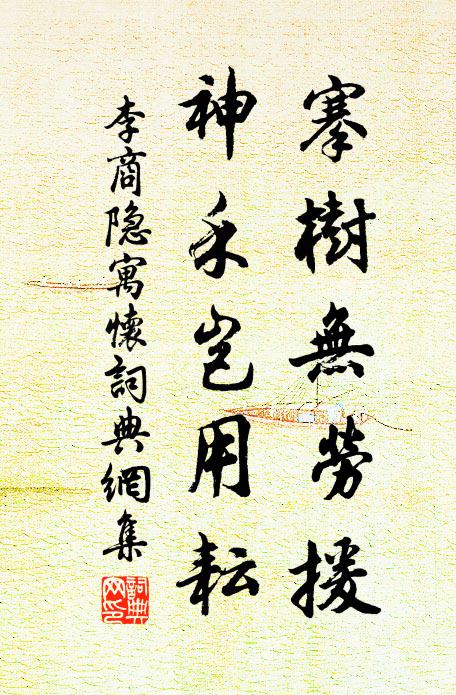 搴樹無勞援
神禾岂用耘
李商隐寓懷詞典網集
詞典网印